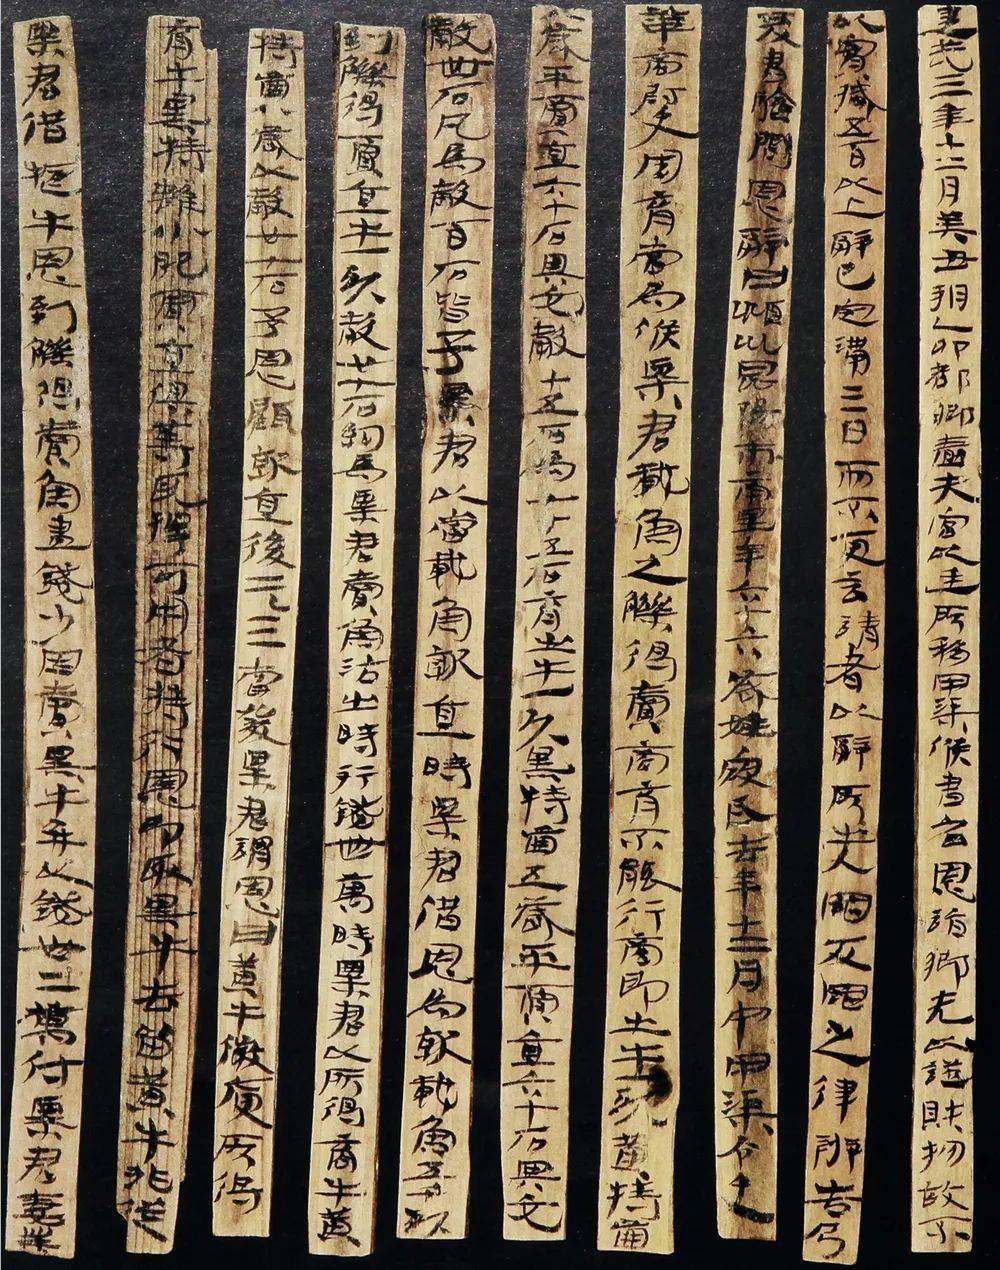 建武三年十二月癸丑朔乙卯都鄉嗇夫宮以廷所移甲渠候書召恩詣鄉先以證財物故不
以實臧五百以上辭已定滿三日而不更言請者以辭所出入罪反罪之律辨告乃
爰書驗問恩辭曰潁川昆陽市南里年六十六歲姓寇氏去年十二月中甲渠令史
華商尉史周育當為候粟君載魚之觻得賣商育不能行商即出牛一頭黃特齒
八歲平賈直六十石與交穀十五石為七十五石育出牛一頭黑特齒五歲平賈直六十石與交
穀卌石凡為穀百石皆予粟君以當載魚就直時粟君借恩為就載魚五千頭
到觻得賈直牛一頭穀廿七石約為粟君賣魚沽出時行錢卌萬時粟君以所得商牛黃
特齒八歲以穀廿七石予恩顧就直後二三日當發粟君謂恩曰黃牛微庾所得
育牛黑特雖小肥賈直俱等耳擇可用者持行恩即取黑牛去留黃牛非從
粟君借犅牛恩到觻得賣魚盡錢少因賣黑牛并以錢卅二萬付粟君妻業